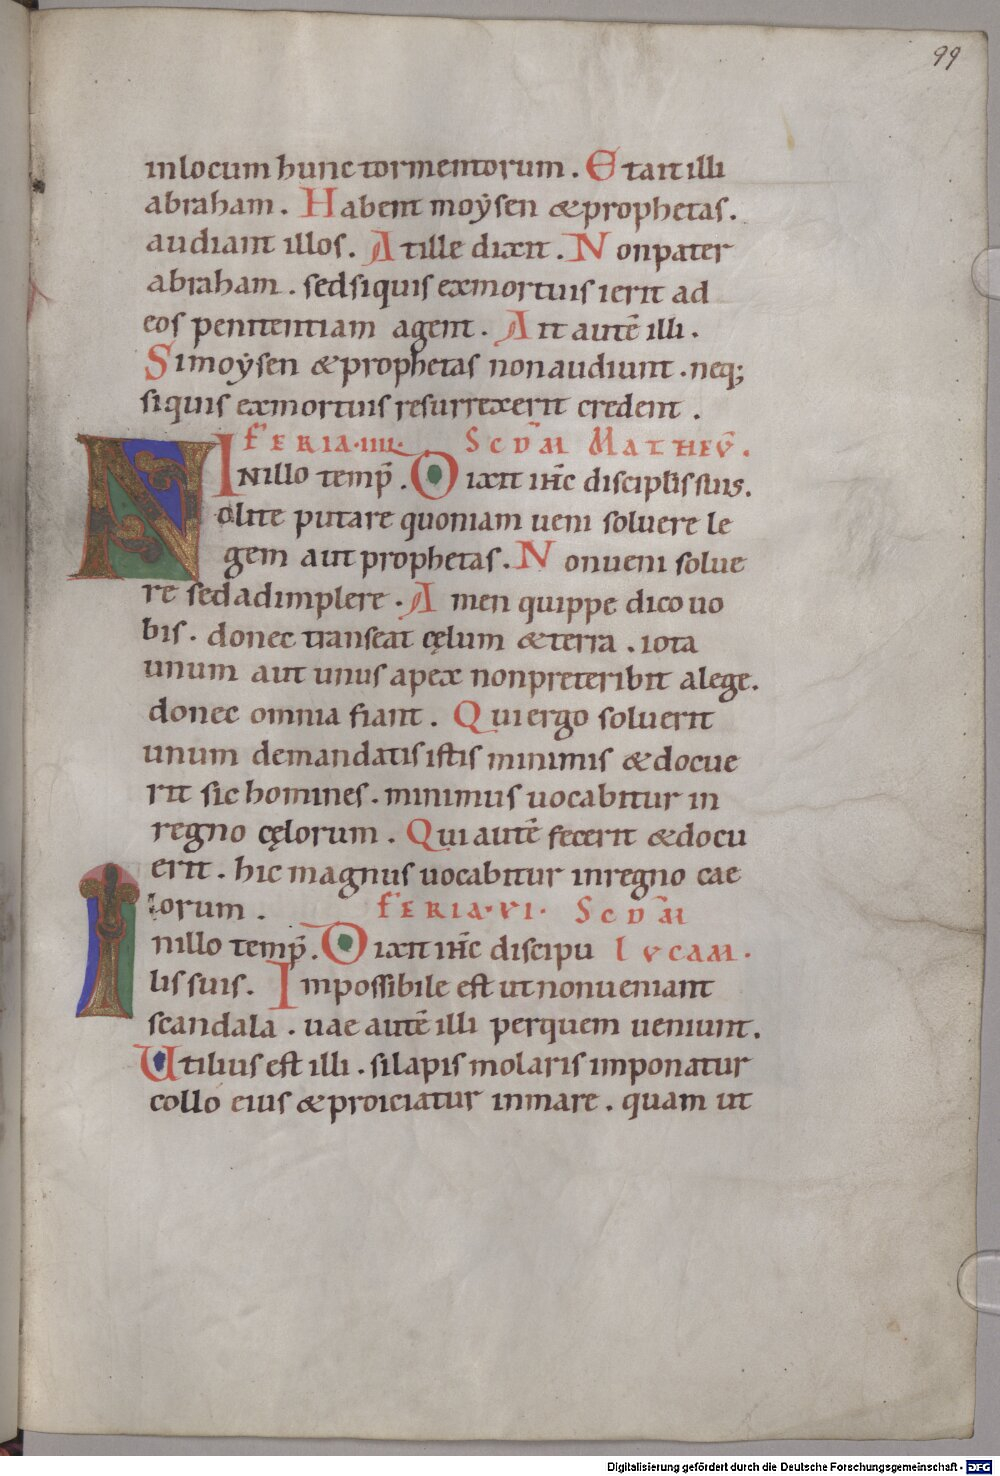 99
in locum hunc tormentorum. Et ait illi
abraham. Habent moẏsen & prophetas.
audiant illos. At ille dixit. Non pater
abraham. sed siquis ex mortuis ierit ad
eos penitentiam agent. Ait autē illi.
Si moẏsen & prophetas non audiunt. neq;
siquis ex mortuis resurrexerit credent.
FERIA·IIII· SCDM̄ MATHEV̄.
In illo temp̄. Dixit ih̄c disciplis suis.
Nolite putare quoniam ueni soluere le
gem aut prophetas. Non ueni solue
re sed adimplere. Amen quippe dico uo
bis. donec transeat cęlum & terra. iota
unum aut unus apex non preteribit a lege.
donec omnia fiant. Qui ergo soluerit
unum de mandatis istis minimis & docue
rit sic homines. minimus uocabitur in
regno cęlorum. Qui autē fecerit & docu
erit. hic magnus uocabitur in regno cae
lorum. FERIA·VI· SCDM̄
In illo temp̄. Dixit ih̄c discipu LVCAM.
lis suis. Impossibile est ut non ueniant
scandala. uae autē illi per quem ueniunt.
Utilius est illi. si lapis molaris imponatur
collo eius & proiciatur in mare. quam ut
Digitalisierung gefördert durch die Deutsche Forschungsgemeinschaft - DFG